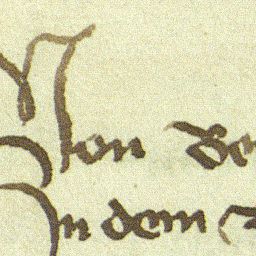 Von Be
In dem